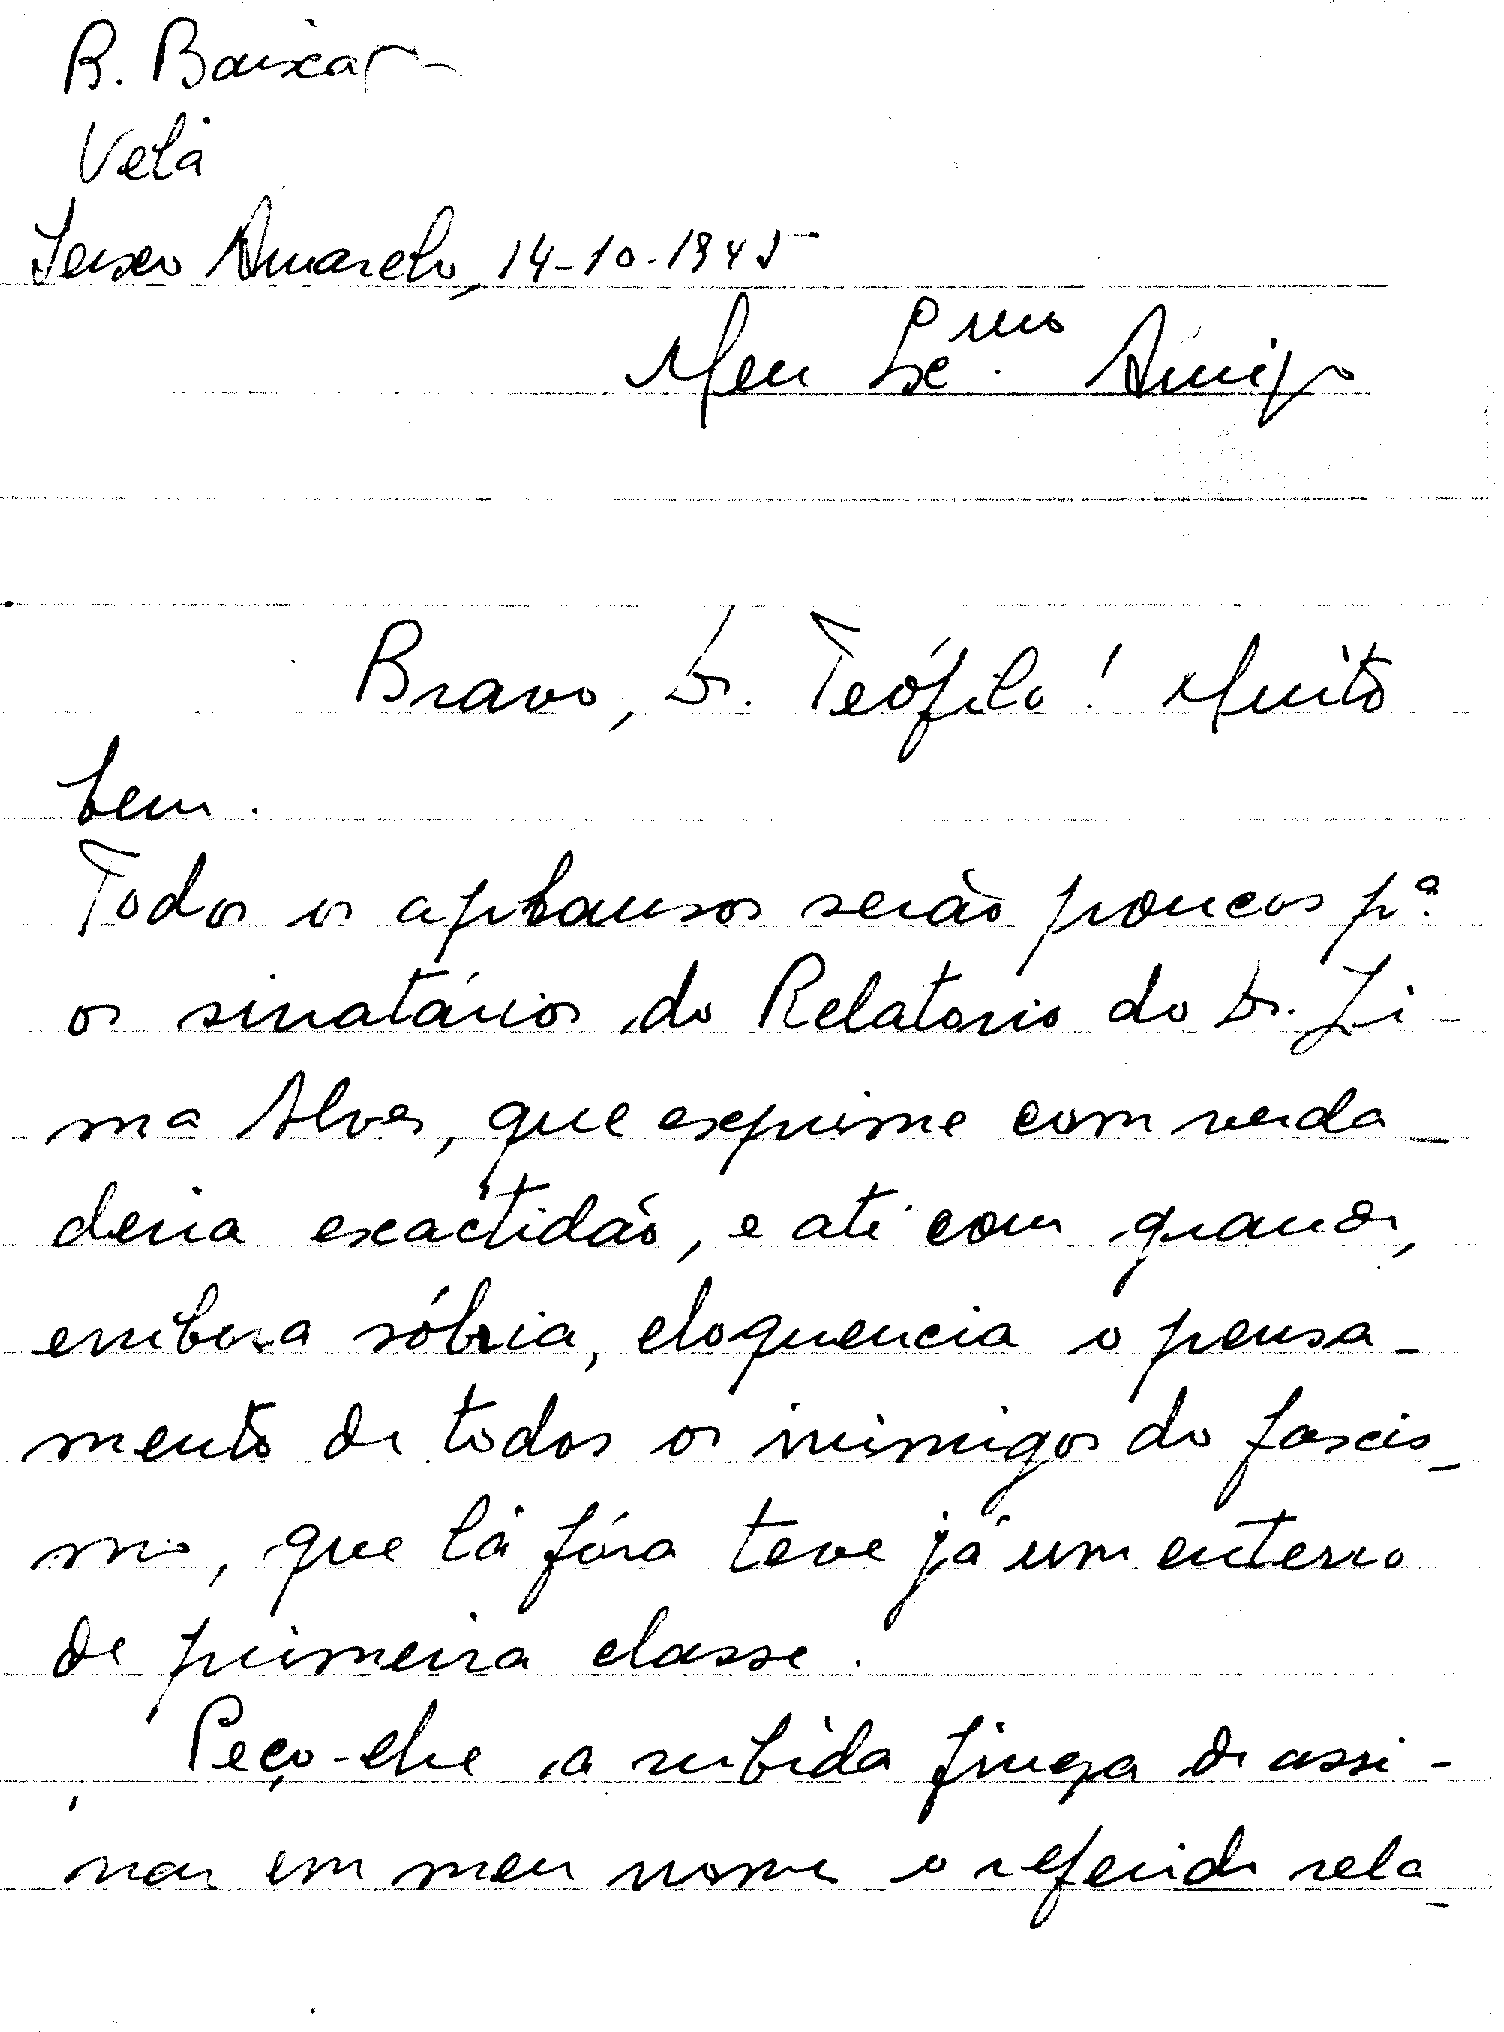 R. Baixa -
Vela
Seixo Amarelo, 14-10-1945
Meu Exmo. Amigo
Bravo, Dr. Teófilo! Muito
bem.
Todos os aplausos serão poucos pª
os sinatários do Relatorio do Dr. Li-
ma Alves, que exprime com verda-
deira exactidão, e até com grande,
embora sóbria, eloquencia o pensa-
mento de todos os inimigos do fascis-
mo, que lá fóra teve já um enterro
de primeira classe.
Peço-lhe a subida fineza de assi-
nar em meu nome o referido rela-